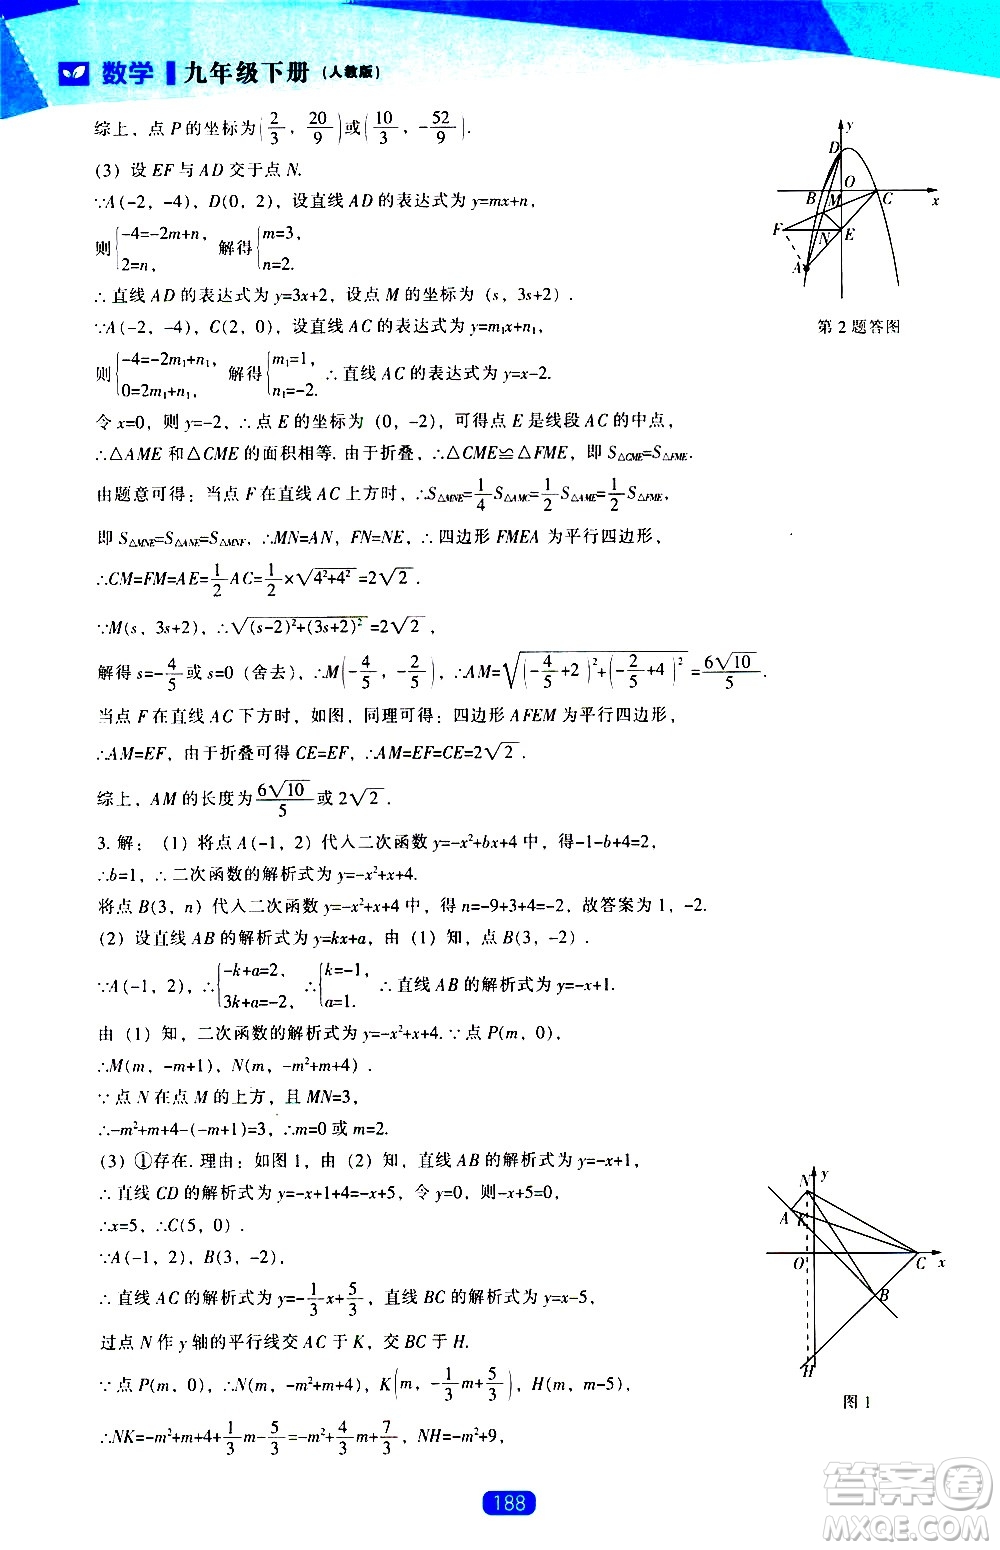 数学 九年级下册 (人教版)
综上，点 P 的坐标为(2/3，20/9)或(10/3，-52/9).
(3) 设 EF 与 AD 交于点 N.
∵A(-2，-4)，D(0，2)，设直线 AD 的表达式为 y=mx+n，
则{-4=-2m+n，2=n，解得{m=3，n=2.
∴直线 AD 的表达式为 y=3x+2，设点 M 的坐标为 (s，3s+2).
∵A(-2，-4)，C(2，0)，设直线 AC 的表达式为 y=m₁x+n₁，
则{-4=-2m₁+n₁，0=2m₁+n₁，解得{m₁=1，n₁=-2. ∴直线 AC 的表达式为 y=x-2.
令 x=0，则 y=-2，∴点 E 的坐标为 (0，-2)，可得点 E 是线段 AC 的中点，
∴△AME 和△CME 的面积相等. 由于折叠，∴△CME≌△FME，即 S△CME=S△FME.
由题意可得：当点 F 在直线 AC 上方时，∴S△MNE=1/4 S△AMC=1/2 S△AME=1/2 S△FME，
即 S△MNE=S△ANE=S△MNF，∴MN=AN，FN=NE，∴四边形 FMEA 为平行四边形，
∴CM=FM=AE=1/2 AC=1/2×√(4²+4²)=2√2.
∵M(s，3s+2)，∴√((s-2)²+(3s+2)²)=2√2，
解得 s=-4/5 或 s=0 (舍去)，∴M(-4/5，-2/5)，∴AM=√((-4/5+2)²+(-2/5+4)²)=6√10/5.
当点 F 在直线 AC 下方时，如图，同理可得：四边形 AFEM 为平行四边形，
∴AM=EF，由于折叠可得 CE=EF，∴AM=EF=CE=2√2.
综上，AM 的长度为 6√10/5 或 2√2.
3. 解：(1) 将点 A(-1，2) 代入二次函数 y=-x²+bx+4 中，得-1-b+4=2，
∴b=1，∴二次函数的解析式为 y=-x²+x+4.
将点 B(3，n) 代入二次函数 y=-x²+x+4 中，得 n=-9+3+4=-2，故答案为 1，-2.
(2) 设直线 AB 的解析式为 y=kx+a，由 (1) 知，点 B(3，-2).
∵A(-1，2)，∴{-k+a=2，3k+a=-2，∴{k=-1，a=1. ∴直线 AB 的解析式为 y=-x+1.
由 (1) 知，二次函数的解析式为 y=-x²+x+4. ∵点 P(m，0)，
∴M(m，-m+1)，N(m，-m²+m+4).
∵点 N 在点 M 的上方，且 MN=3，
∴-m²+m+4-(-m+1)=3，∴m=0 或 m=2.
(3) ①存在. 理由：如图 1，由 (2) 知，直线 AB 的解析式为 y=-x+1，
∴直线 CD 的解析式为 y=-x+1+4=-x+5，令 y=0，则-x+5=0，
∴x=5，∴C(5，0).
∵A(-1，2)，B(3，-2)，
∴直线 AC 的解析式为 y=-1/3 x+5/3，直线 BC 的解析式为 y=x-5，
过点 N 作 y 轴的平行线交 AC 于 K，交 BC 于 H.
∵点 P(m，0)，∴N(m，-m²+m+4)，K(m，-1/3 m+5/3)，H(m，m-5)，
∴NK=-m²+m+4+1/3 m-5/3=-m²+4/3 m+7/3，NH=-m²+9，
y
D
O
B
M
C
x
F
N
E
A
第 2 题答图
N
y
A
K
O
C
x
B
H
图 1
188
答案圈
MXQE.COM